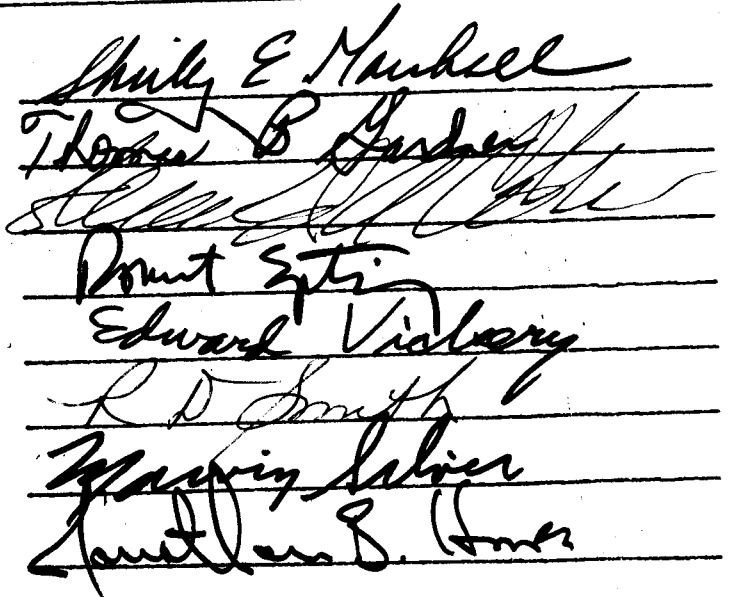 Shirley E. Marshall
Thomas B Gardner
Robert Epting
Edward Vickery
R D Smith
Marvin Silver
Jonathan B. Howes